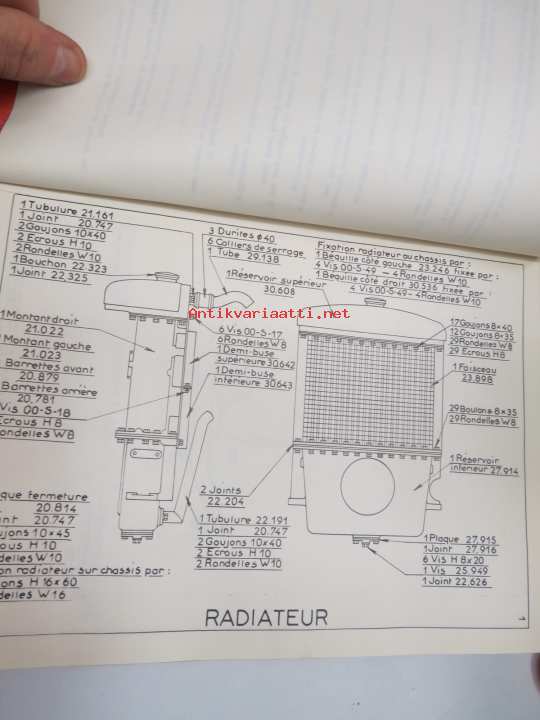 1 Tubulure 21.161
1 Joint 20.747
2 Goujons 10x40
2 Ecrous H 10
2 Rondelles W10
1 Bouchon 22.323
1 Joint 22.325
3 Durites ø40
6 Colliers de serrage
1 Tube 29.138
1 Réservoir supérieur
30.608
Fixation radiateur au chassis par :
1 Béquille côté gauche 23.246 fixée par :
4 Vis 00-S-49 – 4 Rondelles W10
1 Béquille côté droit 30.536 fixée par :
4 Vis 00-S-49-4 Rondelles W10
Antikvariaatti.net
1 Montant droit
21.022
Montant gauche
21.023
Barrettes avant
20.879
Barrettes arrière
20.781
Vis 00-S-18
Ecrous H8
Rondelles W8
6 Vis 00-S-17
6 Rondelles W8
1 Demi-buse
supérieure 30.642
1 Demi-buse
inférieure 30.643
17 Goujons 8x40
12 Goujons 8x35
29 Rondelles W8
29 Ecrous H8
1 Faisceau
23.898
29 Boulons 8x35
29 Rondelles W8
1 Réservoir
inférieur 27.914
2 Joints
22.204
que fermeture
20.814
int 20.747
ujons 10x45
rous H 10
ndelles W10
on radiateur sur chassis par :
ons H 16x60
delles W16
1 Tubulure 22.191
1 Joint 20.747
2 Goujons 10x40
2 Ecrous H 10
2 Rondelles W10
1 Plaque 27.915
1 Joint 27.916
6 Vis H 8x20
1 Vis 25.949
1 Joint 22.626
RADIATEUR
1